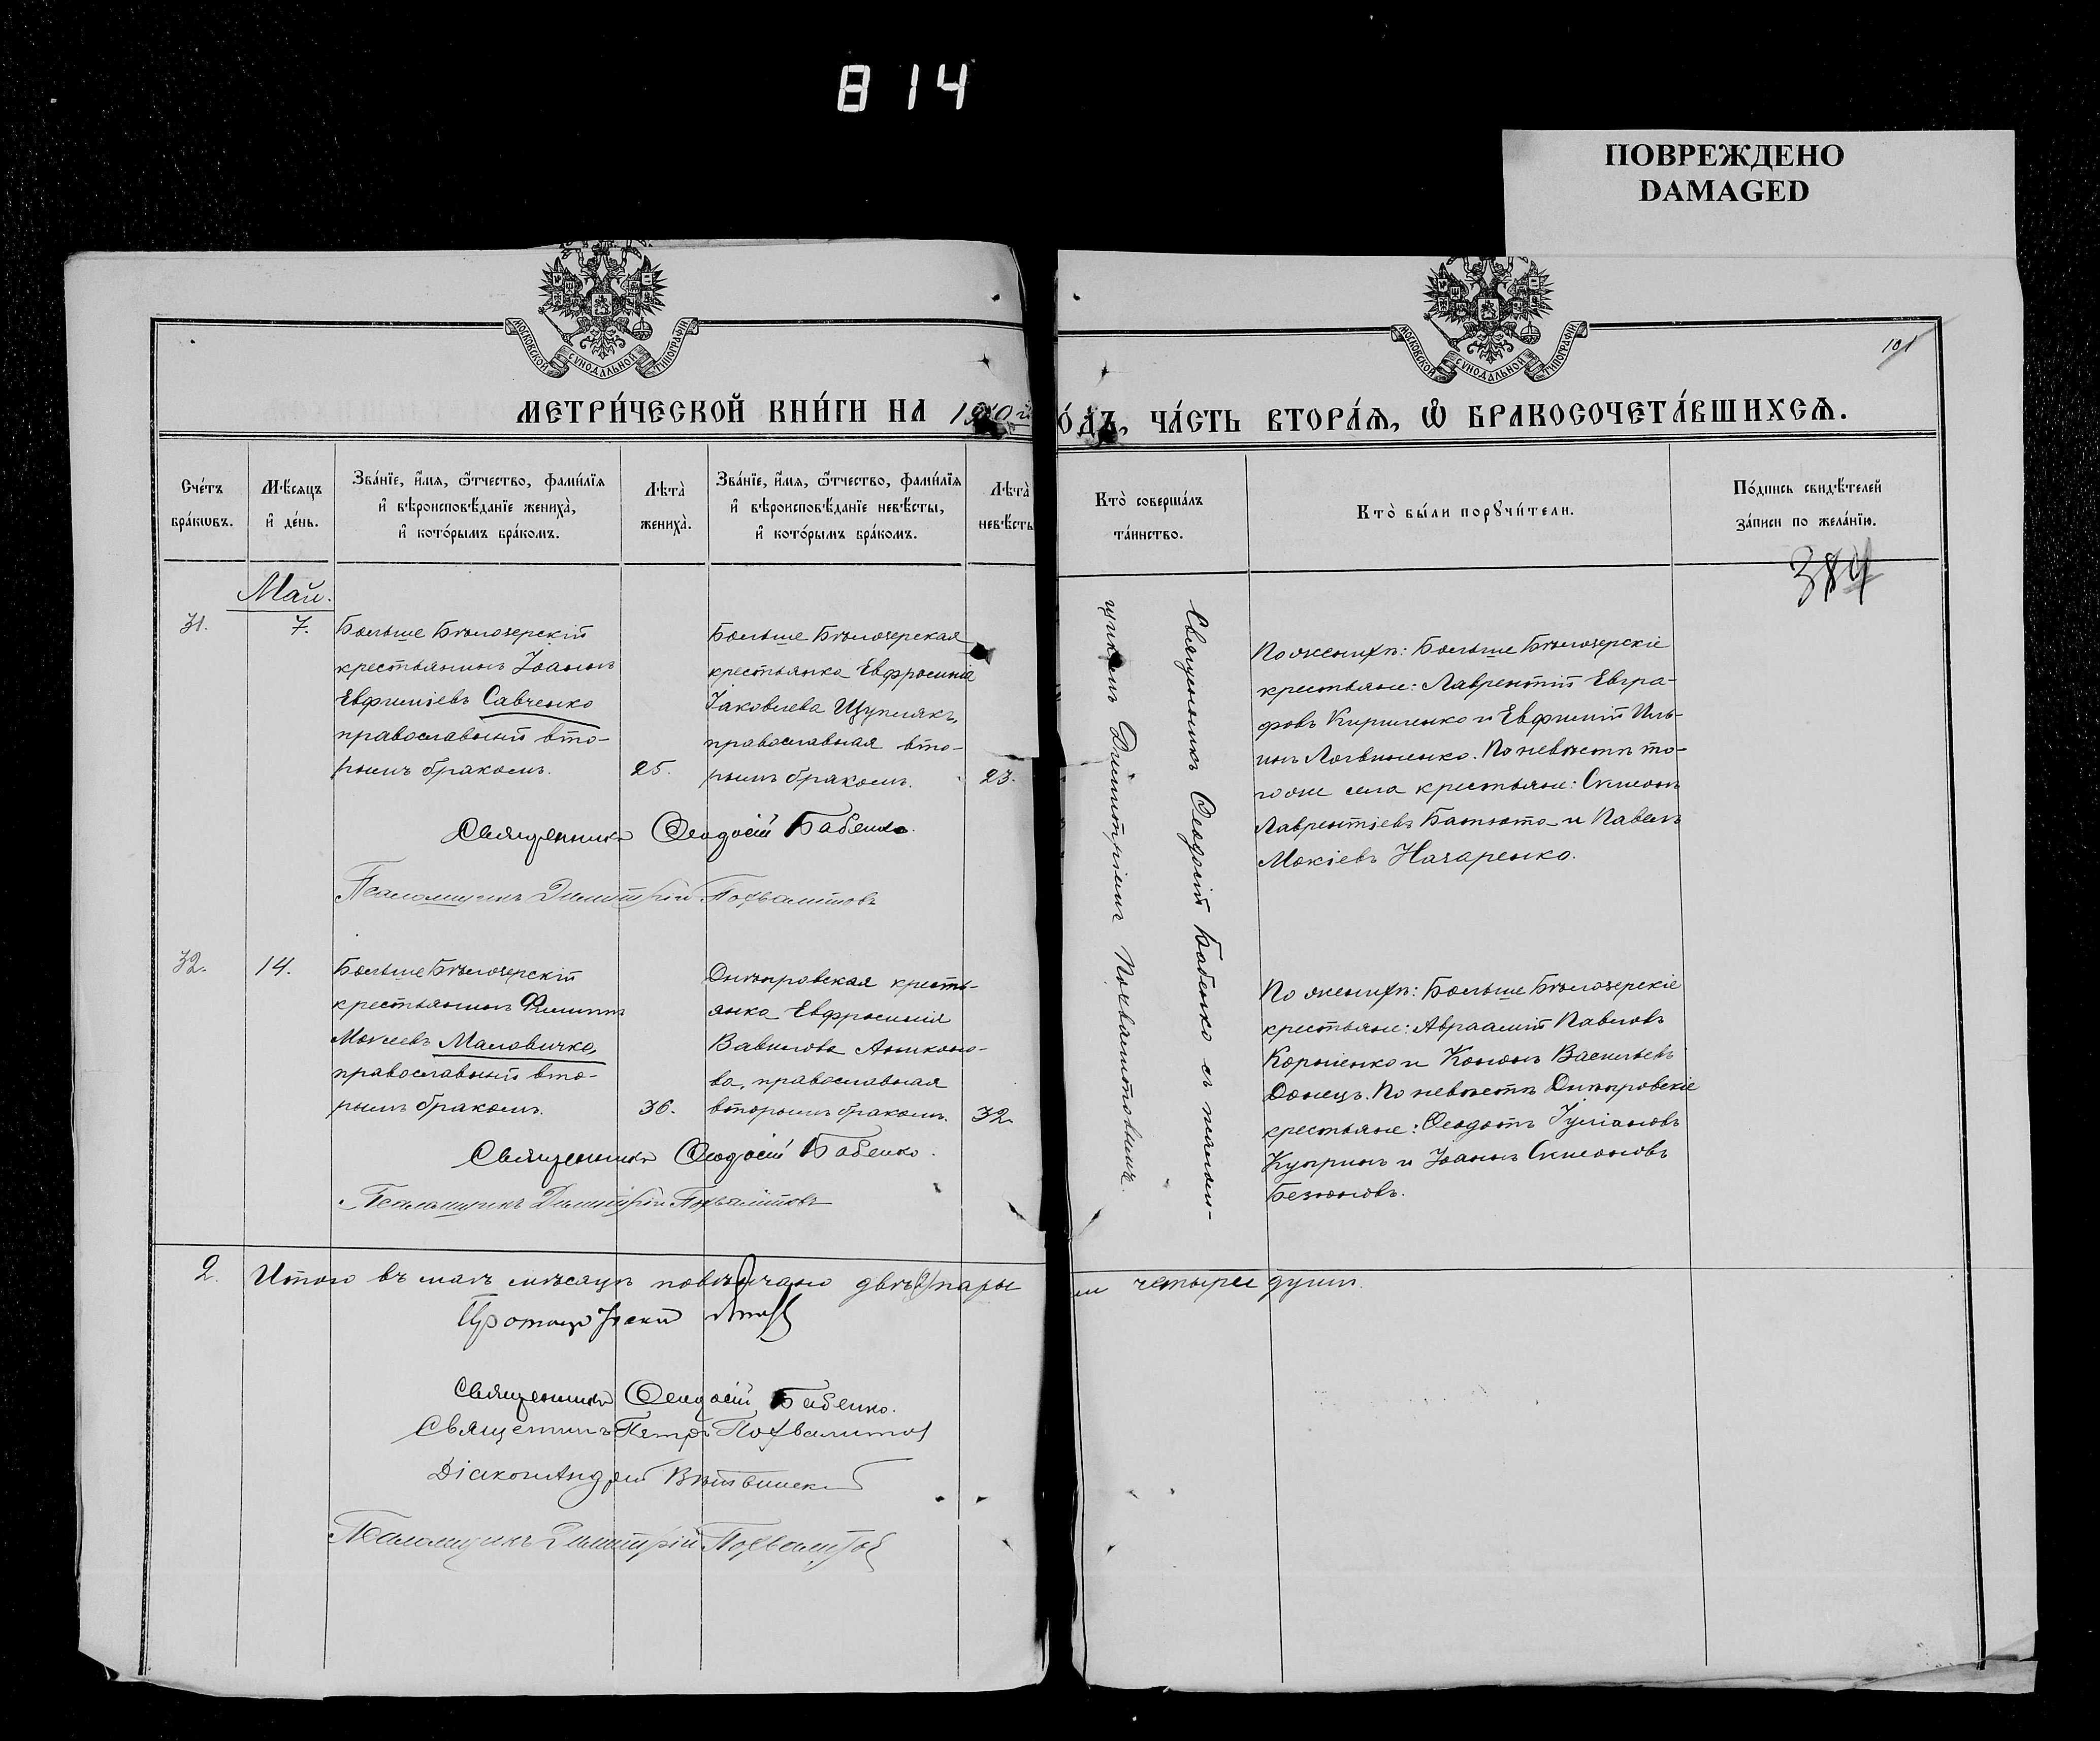 814
ПОВРЕЖДЕНО
DAMAGED
МОСКОВСКОЙ СѴНОДАЛЬНОЙ ТИПОГРАФІИ
МОСКОВСКОЙ СѴНОДАЛЬНОЙ ТИПОГРАФІИ
101
МЕТРИ́ЧЕСКОЙ КНИ́ГИ НА 1910й
О́ДЪ, ЧА́СТЬ ВТОРА́Я, Ѿ БРАКОСОЧЕТА́ВШИХСЯ.
Сче́тъ бра́кѡвъ.
Мѣ́сяцъ и҆ де́нь.
Зва́нїе, и҆́мя, ѻ҆́тчество, фами́лїя и҆ вѣроисповѣ́данїе жениха̀, и҆ кото́рымъ бра́комъ.
Лѣта̀ жениха̀.
Зва́нїе, и҆́мя, ѻ҆́тчество, фами́лїя и҆ вѣроисповѣ́данїе невѣ́сты, и҆ кото́рымъ бра́комъ.
Лѣта̀ невѣ́сты
Кто̀ соверша́лъ та́инство.
Кто̀ бы́ли порꙋчи́тели.
По́дпись свидѣ́телей за́писи по жела́нїю.
384
Май.
31.
7.
Больше Бѣлозерскій
крестьянинъ Іоаннъ
Евфиміевъ Савченко
православный вто-
рымъ бракомъ.
25.
Больше Бѣлозерская
крестьянка Евфросинія
Іаковлева Щуплякъ,
православная вто-
рымъ бракомъ.
23.
Священникъ Ѳеодосій Бабенко съ псалом-
щикомъ Димитріемъ Похвалитовымъ.
По женихѣ: Больше Бѣлозерскіе
крестьяне: Лаврентій Евгра-
фовъ Кириленко и Евфимій Иль-
инъ Логвиненко. По невѣстѣ то-
го же села крестьяне: Симеонъ
Лаврентіевъ и Павелъ
Мокіевъ Назаренко.
Священникъ Ѳеодосій Бабенко.
Псаломщикъ Димитрій Похвалитовъ
32.
14.
Больше Бѣлозерскій
крестьянинъ Филиппъ
Мокіевъ Маловичко,
православный вто-
рымъ бракомъ.
36.
Днѣпровская кресть-
янка Евфросинія
Вавилова Антоно-
ва, православная
вторымъ бракомъ.
32.
По женихѣ: Больше Бѣлозерскіе
крестьяне: Авраамій Павловъ
Корніенко и Кононъ Васильевъ
Донецъ. По невѣстѣ Днѣпровскіе
крестьяне: Ѳеодотъ Іуліановъ
Купринъ и Іоаннъ Симеоновъ
Безноновъ.
Священникъ Ѳеодосій Бабенко.
Псаломщикъ Димитрій Похвалитовъ
2.
Итого въ маѣ мѣсяцѣ повѣнчано двѣ (2) пары
или четыре души.
Священникъ Ѳеодосій Бабенко.
Священникъ Петръ Похвалитов
Діаконъ Андрей Вѣтвинскій
Псаломщикъ Димитрій Похвалитов